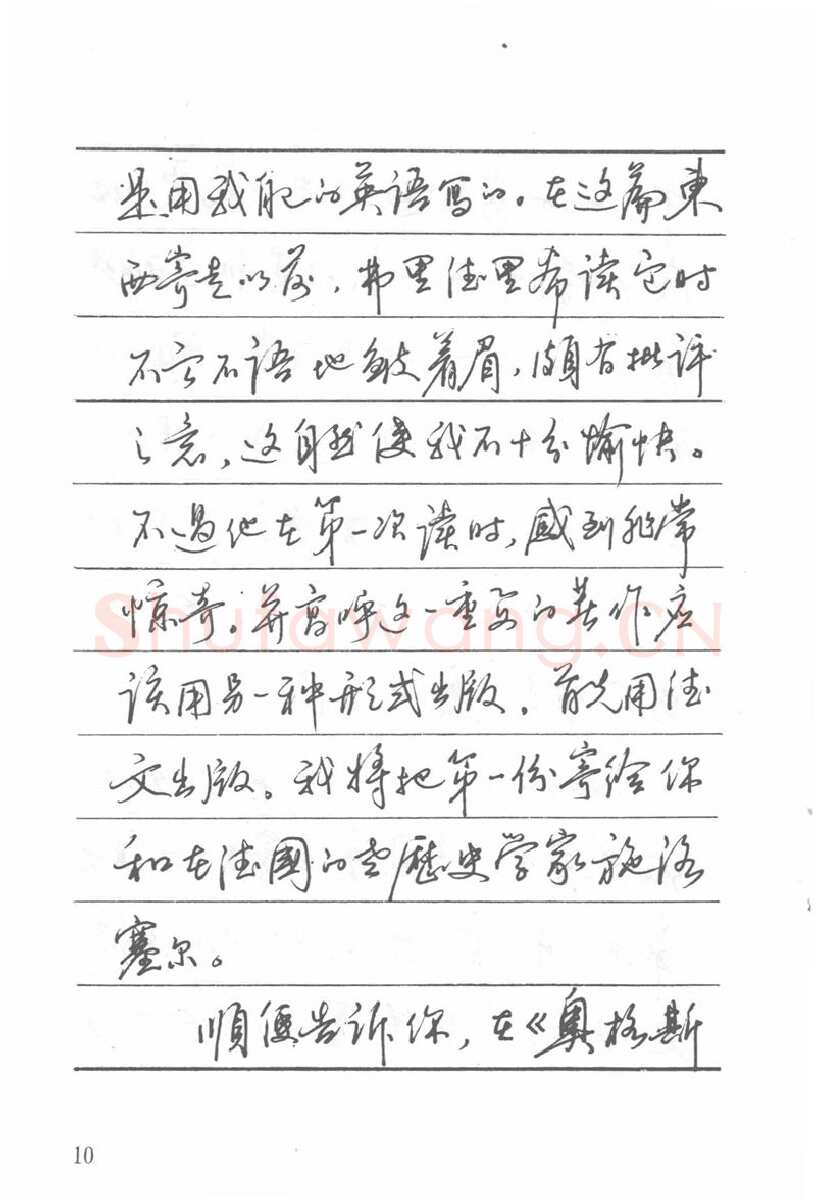 是用我的英语写的。在这篇東
西寄走以前,弗里德里希读它时
不言不语地皱着眉,颇有批评
之意,这自然使我不十分愉快。
不過他在第一次读时,感到非常
惊奇。并高呼这一重要的著作应
该用另一种形式出版,首先用德
文出版。我将把第一份寄给你
和在德國的老歷史学家施洛
塞尔。
順便告诉你,在《奥格斯
10
Shufawang.CN